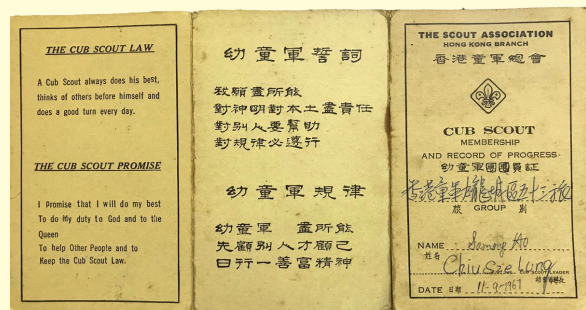 THE CUB SCOUT LAW
A Cub Scout always does his best,
thinks of others before himself and
does a good turn every day.
THE CUB SCOUT PROMISE
I Promise that I will do my best
To do My duty to God and to the
Queen
To help Other People and to
Keep the Cub Scout Law.
幼童軍誓詞
我願盡所能
對神明對本土盡責任
對別人要幫助
對規律必遵行
幼童軍規律
幼童軍 盡所能
先顧別人才顧己
日行一善富精神
THE SCOUT ASSOCIATION
HONG KONG BRANCH
香港童軍總會
CUB SCOUT
MEMBERSHIP
AND RECORD OF PROGRESS
幼童軍團團員証
旅 GROUP 別
NAME
姓名
Chiu Sze Lung
CUB SCOUT LEADER
DATE 日期 11-9-1967